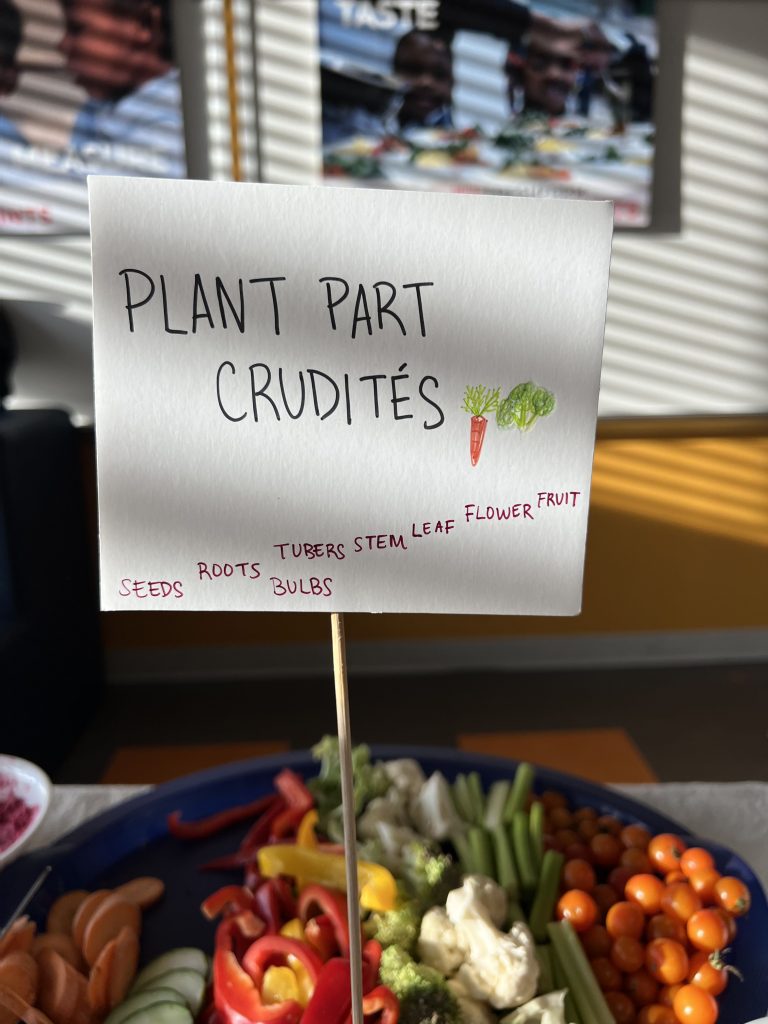 TASTE
PLANT PART
CRUDITÉS
SEEDS ROOTS TUBERS STEM LEAF FLOWER FRUIT
BULBS